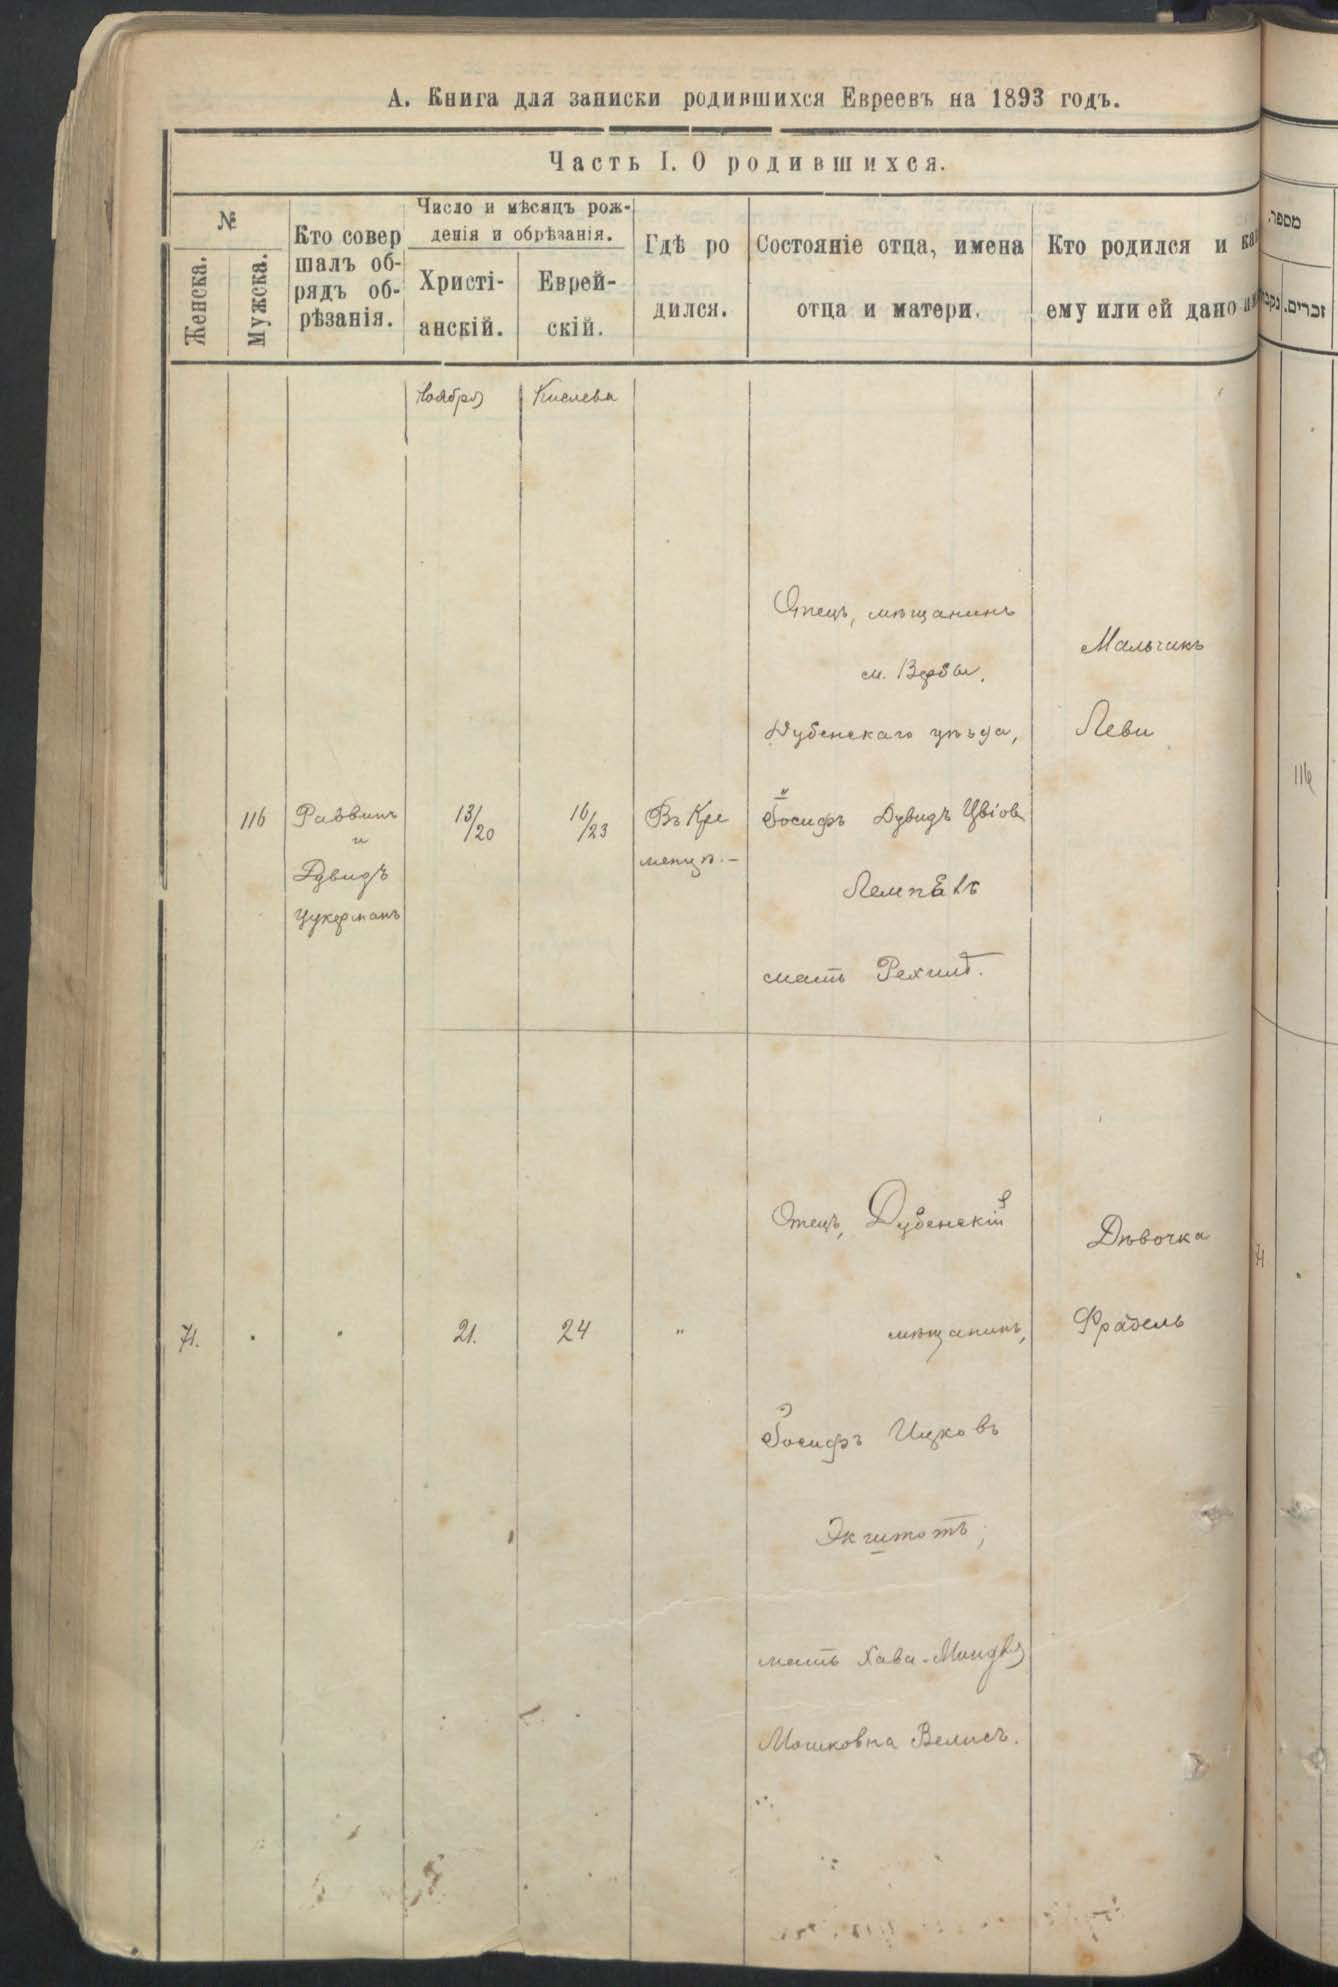 А. Книга для записки родившихся Евреевъ на 1893 годъ.
Часть I. О родившихся.
№
Женска.
Мужска.
Кто совер
шалъ об-
рядъ об-
рѣзанія.
Число и мѣсяцъ рож-
денія и обрѣзанія.
Христі-
анскій.
Еврей-
скій.
Гдѣ ро
дился.
Состояніе отца, имена
отца и матери.
Кто родился и
ему или ей дано
מספר.
זכרים.
Ноября
Кислева
116
Раввинъ
и
Дувидъ
Цукерманъ
13/20
16/23
Въ Кре
менцѣ.–
Отецъ, мѣщанинъ
м. Вербы,
Дубенскаго уѣзда,
Іосифъ Дувидъ
мать
Мальчикъ
Леви
116
71.
21.
24
"
Отецъ, Дубенскій
мѣщанинъ,
Іосифъ Ицковъ
мать Хава-Миндля
Мошковна Велисъ.
Дѣвочка
Фрадель
71